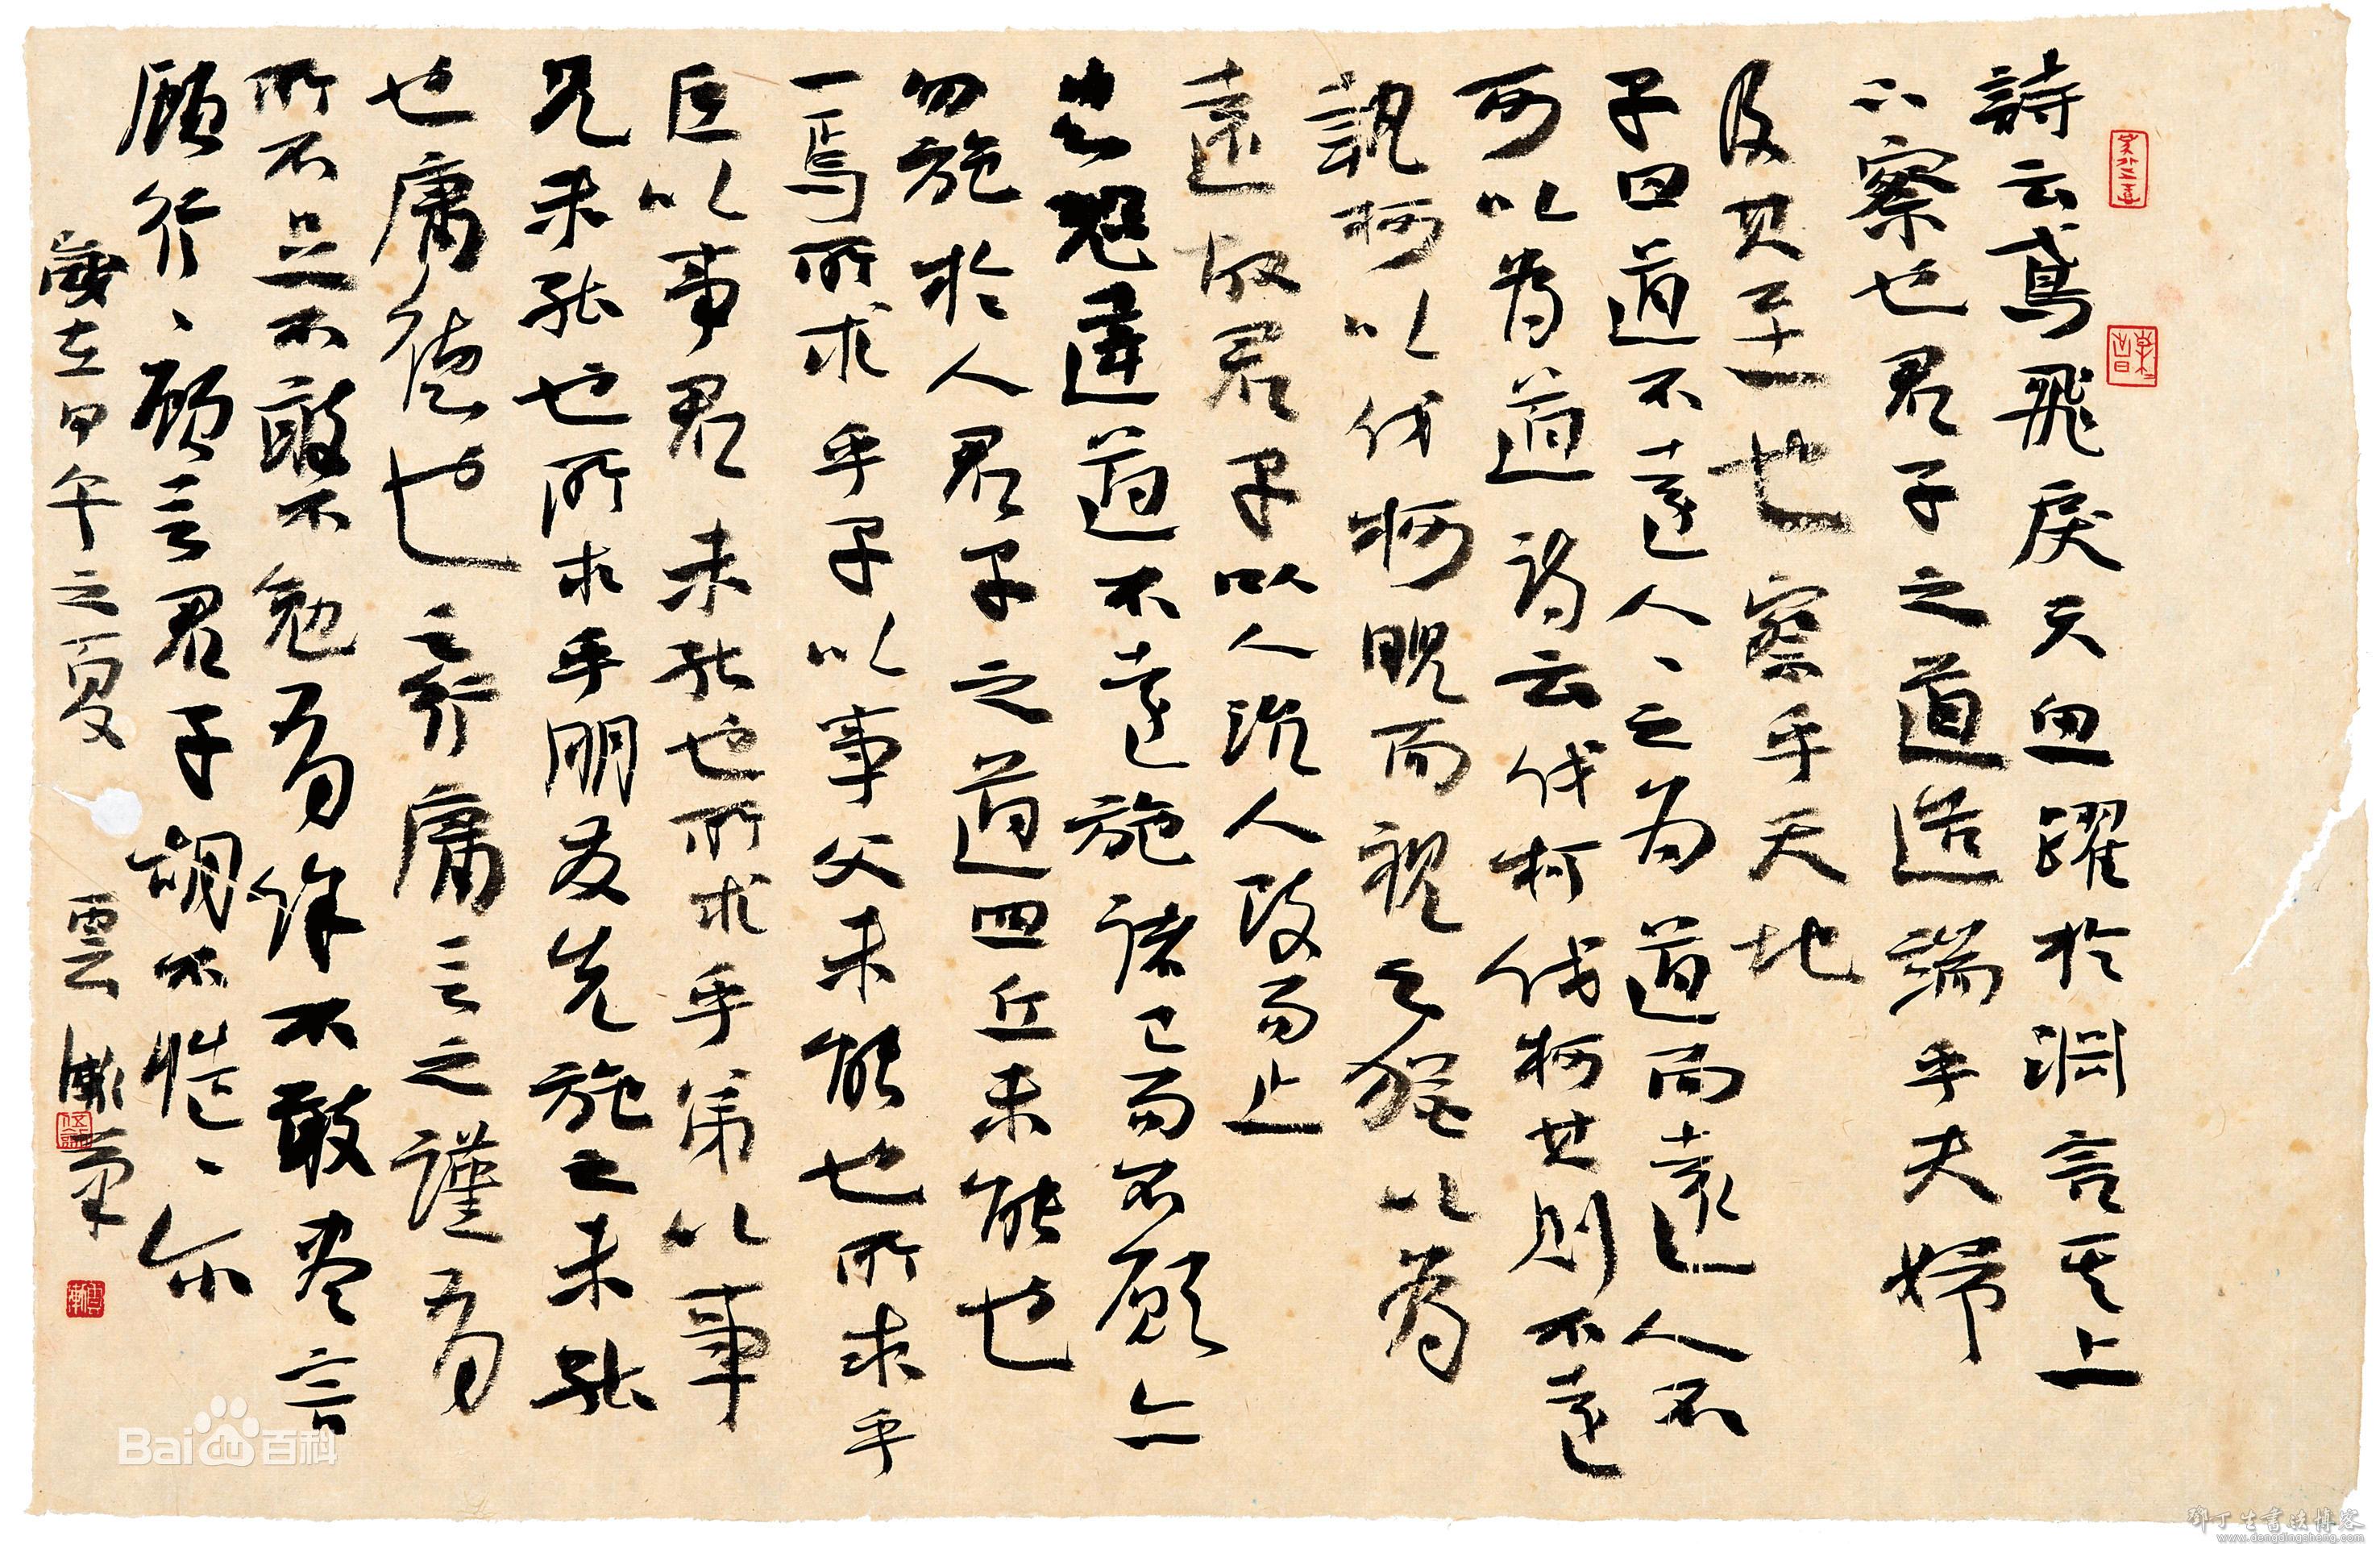 詩云鳶飛戾天魚躍於淵言其上
下察也君子之道造端乎夫婦
及其至也察乎天地
子曰道不遠人、之為道而遠人不
可以為道詩云伐柯伐柯其則不遠
執柯以伐柯睨而視之猶以為
遠故君子以人治人改而止
忠恕違道不遠施諸己而不願亦
勿施於人君子之道四丘未能也
一焉所求乎子以事父未能也所求乎
臣以事君未能也所求乎弟以事
兄未能也所求乎朋友先施之未能
也庸德也之行庸言之謹有
所不足不敢不勉有餘不敢尽言
顧行、顧言君子胡不慥、尔
歲在甲午之夏 雲
Baidu百科
鄧丁生書法博客
www.dengdingsheng.com